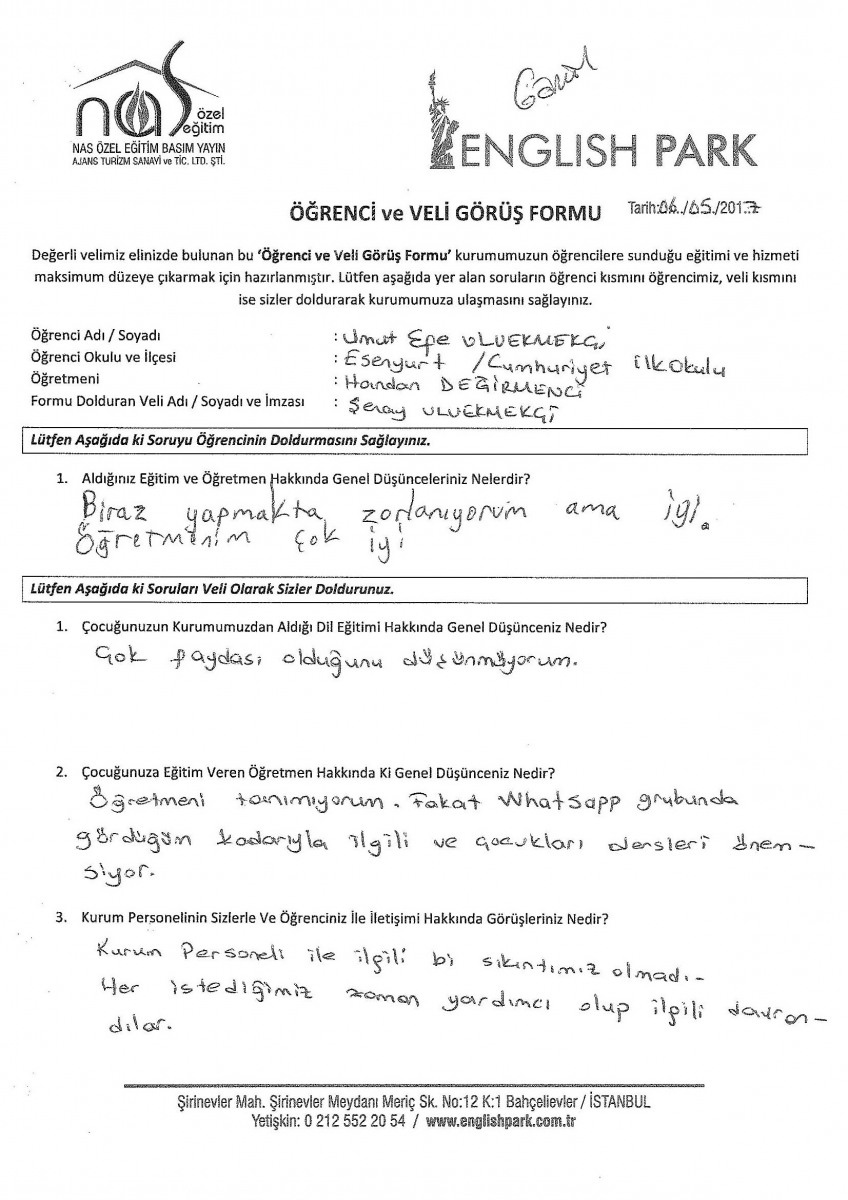 nas özel eğitim
NAS ÖZEL EĞİTİM BASIM YAYIN
AJANS TURİZM SANAYİ ve TİC. LTD. ŞTİ.
ENGLISH PARK
ÖĞRENCİ ve VELİ GÖRÜŞ FORMU Tarih:06./05./2017
Değerli velimiz elinizde bulunan bu ‘Öğrenci ve Veli Görüş Formu’ kurumumuzun öğrencilere sunduğu eğitimi ve hizmeti
maksimum düzeye çıkarmak için hazırlanmıştır. Lütfen aşağıda yer alan soruların öğrenci kısmını öğrencimiz, veli kısmını
ise sizler doldurarak kurumumuza ulaşmasını sağlayınız.
Öğrenci Adı / Soyadı : Umut Efe ULUEKMEKÇİ
Öğrenci Okulu ve İlçesi : Esenyurt /Cumhuriyet ilkokulu
Öğretmeni : Handan DEĞİRMENCİ
Formu Dolduran Veli Adı / Soyadı ve İmzası : Şeray ULUEKMEKÇİ
Lütfen Aşağıda ki Soruyu Öğrencinin Doldurmasını Sağlayınız.
1. Aldığınız Eğitim ve Öğretmen Hakkında Genel Düşünceleriniz Nelerdir?
Biraz yapmakta zorlanıyorum ama iyi.
Öğretmenim çok iyi
Lütfen Aşağıda ki Soruları Veli Olarak Sizler Doldurunuz.
1. Çocuğunuzun Kurumumuzdan Aldığı Dil Eğitimi Hakkında Genel Düşünceniz Nedir?
Çok faydası olduğunu düşünmüyorum.
2. Çocuğunuza Eğitim Veren Öğretmen Hakkında Ki Genel Düşünceniz Nedir?
Öğretmeni tanımıyorum. Fakat Whatsapp grubunda
gördüğüm kadarıyla ilgili ve çocukları dersleri önem-
siyor.
3. Kurum Personelinin Sizlerle Ve Öğrenciniz İle İletişimi Hakkında Görüşleriniz Nedir?
Kurum Personeli ile ilgili bi sıkıntımız olmadı.
Her istediğimiz zaman yardımcı olup ilgili davran-
dılar.
Şirinevler Mah. Şirinevler Meydanı Meriç Sk. No:12 K:1 Bahçelievler / İSTANBUL
Yetişkin: 0 212 552 20 54 / www.englishpark.com.tr